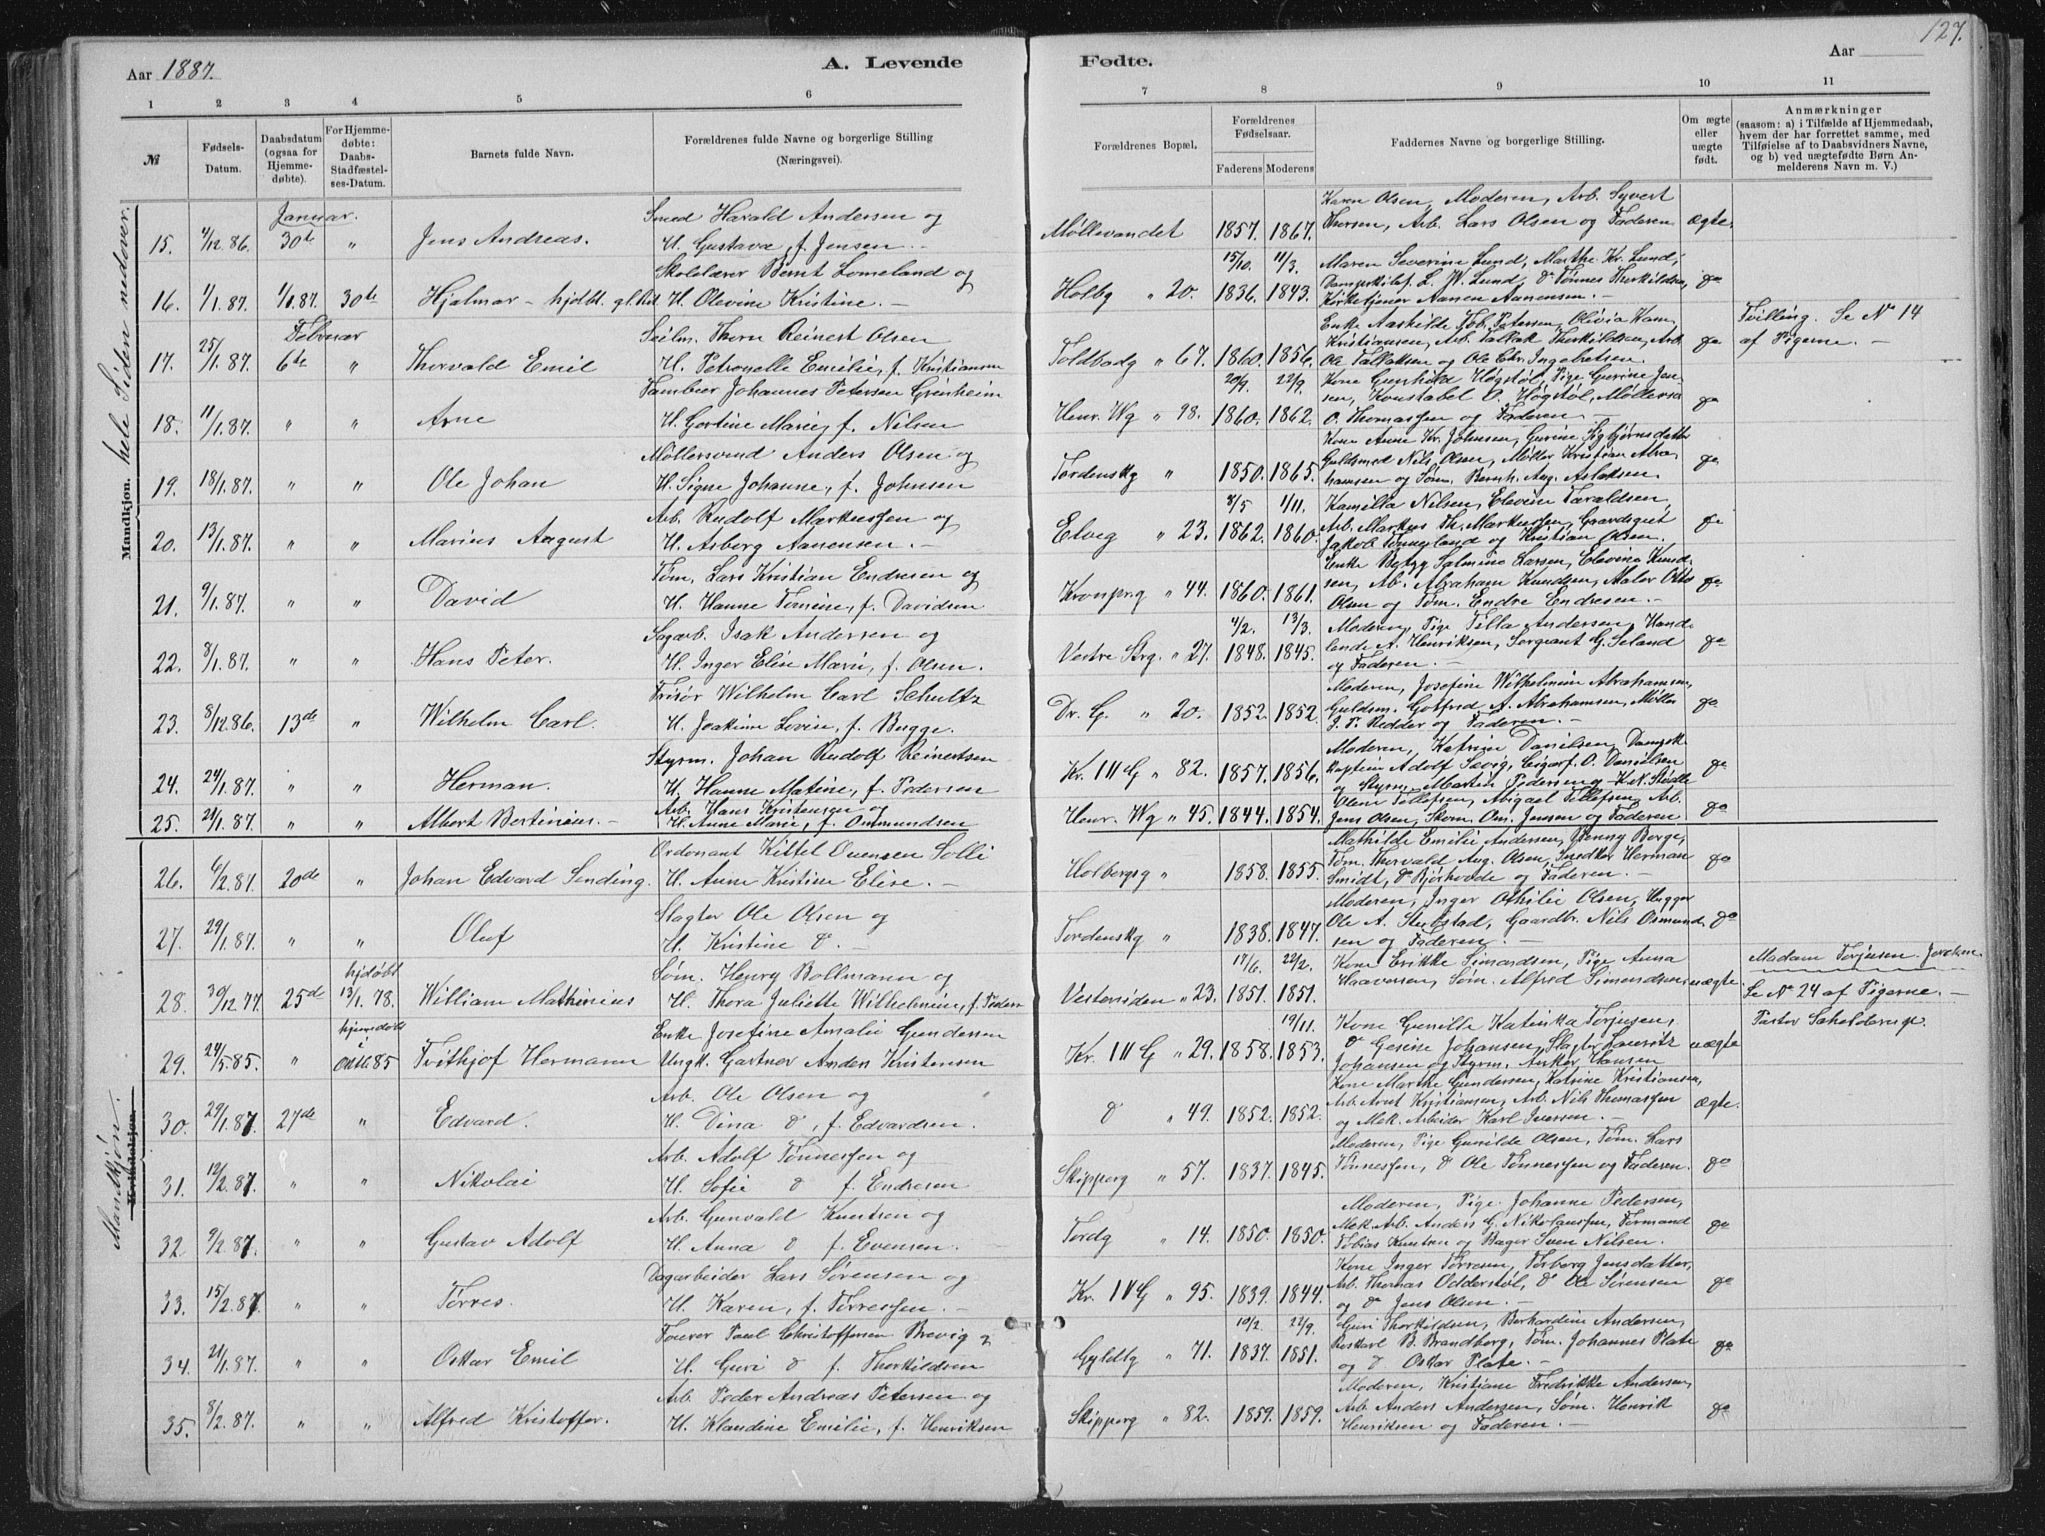 127.
Aar 1887.
A. Levende
Fødte.
Aar
1 2 3 4 5 6 7 8 9 10 11
№
Fødsels-Datum.
Daabsdatum (ogsaa for Hjemme-døbte).
For Hjemme-døbte: Daabs-Stadfæstel-ses-Datum.
Barnets fulde Navn.
Forældrenes fulde Navne og borgerlige Stilling (Næringsvei).
Forældrenes Bopæl.
Forældrenes Fødselsaar.
Faderens Moderens
Faddernes Navne og borgerlige Stilling.
Om ægte eller uægte født.
Anmærkninger
(saasom: a) i Tilfælde af Hjemmedaab, hvem der har forrettet samme, med Tilføielse af to Daabsvidners Navne, og b) ved uægtefødte Børn Anmelderens Navn m. V.)
Mandkjøn. hele Siden nedover.
Januar.
Smed Harald Andersen og
Karen Olsen, Moderen, Arb. Syvert
15. 4/12.86. 30te " Jens Andreas. H. Gustava, f. Jensen. — Møllevandet 1857. 1867. Thersen, Arb. Lars Olsen og Faderen ægte.
Skolelærer Bernt Lomeland og
15/10. 11/3. Maren Severine Lund, Marthe Kr. Lund,
16. 1/1.87. 1/1.87. 30te Hjalmar — hjdbt. H. Olevine Kristine. — Holbg " 20. 1836. 1843. Dampskibsf. L. W. Lund, do Tønnes Therkildsen, do
Kirketjener Aanen Aanensen. —
Februar
Seilm. Thorn Reinert Olsen
Enke Aashilde Job. Petersen, Olivia Kam.
Tvilling. Se No 14
Kristiansen, Arb. Tallak Therkildsen, Arb.
17. 25/1.87. 6te " Thorvald Emil H. Petronelle Emilie, f. Kristiansen Toldbodg " 67. 1860. 1856. Ole Tallaksen og Ole Chr. Ingebretsen. do af Pigerne. —
Tambur Johannes Petersen Grönheim
20/9. 22/9. Kone Gunhild Høgstøl, Pige Gurine Jen-
sen, Konstabel O. Høgstøl, Møllersv.
18. 11/1.87. " " Arne H. Gortine Marie, f. Nilsen Henr. Wg " 98. 1860. 1862. O. Thomassen og Faderen. — do
Møllersvend Anders Olsen og
Kone Anne Kr. Johnsen, Gurine Sigbjørnsdatter
19. 18/1.87. " " Ole Johan H. Signe Johanne, f. Johnsen Tordenskg " 1850. 1865. Guldsmed Nils Olsen, Møller Kristian Abra- do
hamsen og Tøm. Bernh. Aug. Aslaksen.
Arb. Rudolf Markussen og
8/5 1/11. Kamilla Nilsen, Elevine Taraldsen,
20. 13/1.87. " " Marius August H. Asborg Aanensen. — Elveg " 23. 1862. 1860. Arb. Markus Th. Markussen, Gaardsgut do
Jakob Tønnesland og Kristian Olsen.
Tøm. Lars Kristian Endresen og
Enke Berg Salmine Larsen, Elevine Knud-
21. 9/1.87. " " David H. Hanne Tomine, f. Davidsen Kronprg " 44. 1860. 1861. sen, Arb. Abraham Knudsen, Maler Otto do
Olsen og Tøm. Endre Endresen. —
Sagarb. Isak Andersen og
4/2. 13/3. Moderen, Pige Tilla Andersen, Hand-
22. 8/1.87. " " Hans Peter. H. Inger Elise Marie, f. Olsen. Vestre Strg. " 27. 1848. 1845. lende A. Henriksen, Sergeant G. Seland do
og Faderen. —
Frisør Wilhelm Carl Schultz
Moderen, Josefine Wilhelmine Abrahamsen,
23. 8/12.86. 13de " Wilhelm Carl. H. Joakime Lovise, f. Bugge. Dr. G. " 20. 1852. 1852. Guldsm. Gotfred A. Abrahamsen, Møller do
J. P. Redder og Faderen. —
Styrm. Johan Rudolf Reinertsen
Moderen, Katrine Danielsen, Dampsk.
24. 24/1.87. " " Herman. H. Hanne Matine, f. Pedersen Kr. III G " 82. 1857. 1856. Kaptein Adolf Sævig, Cigarf. O. Danielsen do
og Styrm. Martin Pedersen og K. N. Stødle
Arb. Hans Kristensen og
Olene Tellefsen, Abigael Tellefsen, Arb.
25. 21/1.87. " " Albert Bertinius. — H. Anne Marie, f. Ommundsen Henr. Wg " 45. 1844. 1854. Jens Olsen, Skom. Om. Jensen og Faderen. do
Ordonant Kittel Ovensen Solli
Mathilde Emilie Andersen, Jenny Borge,
26. 6/2.87. 20de " Johan Edvard Sending. H. Anne Kristine Elise. — Holbergsg " 1858. 1855. Tøm. Thorvald Aug. Olsen, Snedker Herman do
Smidt, do Bjørhovde og Faderen. —
Slagter Ole Olsen og
Moderen, Inger Othilie Olsen, Hugger
27. 29/1.87. " " Oluf H. Kristine do. — Tordenskg " 1838. 1847. Ole A. Stubstad, Gaardbr. Nils Osmund- do
sen og Faderen. —
hjdøbt
Søm. Henry Bollmann og
17/6. 22/2. Kone Erikke Simonsen, Pige Anna
Madam Torjusen.
28. 30/12.77. 25de 13/1.78. William Mathinius H. Thora Juliette Wilhelmine, f. Peders. Vestersiden " 23. 1851. 1851. Haaversen, Søm. Alfred Simondsen uægte Se No 24 af Pigerne. —
hjemdøbt i
Enke Josefine Amalie Gundersen
19/11. Kone Gunille Katinka Torjusen, Pastor Schelderup.
29. 24/5.85. " Oktb 85 Frithjof Hermann Ungk. Gartner Anders Kristensen Kr. III G " 29. 1858. 1853. do Gesine Johansen, Slagter Lauritz uægte
Johansen og Styrm. Anker Hansen
Mandkjøn.
Kvindekjøn.
Arb. Ole Olsen og
Kone Marthe Gundersen, Katrine Kristiansen,
30. 29/1.87. 27de " Edvard. H. Dina do, f. Edvardsen. do " 49. 1852. 1852. Arb. Arnt Kristiansen, Arb. Nils Thomassen ægte.
og Mek. Arbeider Karl Iversen. —
Arb. Adolf Tønnessen og
Moderen, Pige Gunilde Olsen, Tøm. Lars
31. 12/2.87. " " Nikolai H. Sofie do f. Endresen Skipperg " 57. 1837. 1845. Tønnessen, do Ole Tønnessen og Faderen. do
Arb. Gunvald Knutsen og
Moderen, Pige Johanne Pedersen,
32 9/2.87. " " Gustav Adolf H. Anna do f. Evensen. Tordg " 14. 1850. 1850. Mek. Arb. Anders G. Nikolaussen, Formand do
Tobias Knutsen og Bager Sven Nilsen.
Dagarbeider Lars Sørensen og
Kone Inger Torresen, Torborg Jensdatter,
33. 15/2.87. " " Tørres. H. Karen, f. Tørressen. — Kr. IV G " 95. 1839. 1844. Arb. Thomas Odderstøl, do Ole Sørensen do
og do Jens Olsen. —
Farver Paul Christoffersen Brevig og
10/2. 22/9. Guri Thorkildsen, Berhardine Andersen,
34. 21/1.87. " " Oskar Emil H. Guri do f. Therkildsen Gyldlg " 71. 1837. 1851. Postkarl B. Brandborg, Tøm. Johannes Plate do
og do Oskar Plate. —
Arb. Peder Andreas Petersen og
Moderen, Kristiane Fredrikke Andersen,
35. 8/2.87. " " Alfred Kristoffer. H. Klaudine Emilie, f. Henriksen Skipperg " 82. 1859. 1859. Arb. Anders Andersen, Søm. Henrik do
Henriksen og Faderen. —